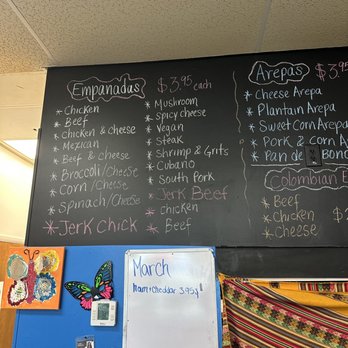 Empanadas $3.95 each
* Chicken
* Beef
* Chicken & cheese
* Mexican
* Beef & cheese
* Broccoli/Cheese
* Corn/Cheese
* Spinach/Cheese
* Jerk Chick
* Mushroom
* Spicy cheese
* Vegan
* Steak
* Shrimp & Grits
* Cubano
* South Pork
* Jerk Beef
* Chicken
* Beef
Arepas $3.95
* Cheese Arepa
* Plantain Arepa
* Sweet Corn Arepa
* Pork & Corn A
* Pan de Bono
Colombian E
* Beef
* Chicken
* Cheese
$2
March
Ham & cheddar 3.95